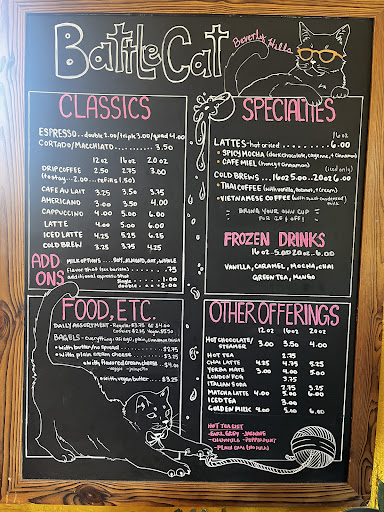 BattleCat
Beverly Hills
CLASSICS
ESPRESSO... double 2.00/triple 3.00/quad 4.00
CORTADO/MACCHIATO.......... 3.50
12oz 16oz 20oz
DRIP COFFEE 2.50 2.75 3.00
(to stay... 2.00... refills 1.50)
CAFE AU LAIT 3.25 3.50 3.75
AMERICANO 3.00 3.50 4.00
CAPPUCCINO 4.00 5.00 6.00
LATTE 4.00 5.00 6.00
ICED LATTE 4.25 5.25 6.25
COLD BREW 3.25 3.75 4.25
ADD ONS
MILK OPTIONS... SOY, ALMOND, OAT, WHOLE
flavor shot (see barista) .75
additional espresso shot
single... 1.00
double... 2.00
SPECIALTIES
16oz
LATTES-hot or iced........... 6.00
• SPICY MOCHA (dark chocolate, cayenne, + cinnamon)
• CAFE MIEL (honey + cinnamon)
(iced only)
COLD BREWS... 16oz 5.00... 20oz 6.00
• THAI COFFEE (with vanilla, + cream)
• VIETNAMESE COFFEE (with sweet condensed milk)
BRING YOUR OWN CUP
for 25¢ off!
FROZEN DRINKS
16oz-5.00 20oz-6.00
VANILLA, CARAMEL, MOCHA, CHAI
GREEN TEA, MANGO
FOOD, ETC.
DAILY ASSORTMENT - Regular $3.75 GF $4.00
Cookies
BAGELS - everything, asiago, plain, cinnamon raisin
• with butter/no spread... $2.75
• with plain cream cheese... $3.75
• with flavored cream cheese... $4.00
-veggie -jalapeño
• with vegan butter... $3.25
OTHER OFFERINGS
12oz 16oz 20oz
HOT CHOCOLATE/STEAMER 3.00 3.50 4.00
HOT TEA 2.75
CHAI LATTE 4.25 4.75 5.25
YERBA MATE 3.00 4.00 5.00
LONDON FOG
ITALIAN SODA 3.75
MATCHA LATTE 4.00 5.00 6.00
ICED TEA 3.00
GOLDEN MILK 4.00 5.00 6.00
HOT TEA LIST
-EARL GREY -JASMINE
-CHAMOMILE -PEPPERMINT